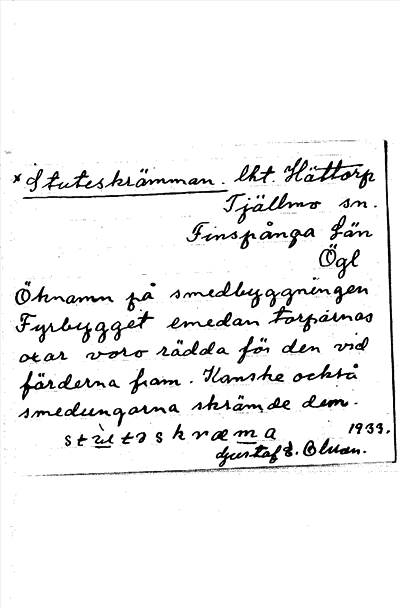 × Stuteskrämman. lht. Hättorp
Tjällmo sn.
Finspånga Län
Ögl
Öknamn på smedbyggningen
Fyrbygget emedan torparnas
oxar voro rädda för den vid
färderna fram. Kanske också
smedungarna skrämde dem.
1933.
Gustaf E.